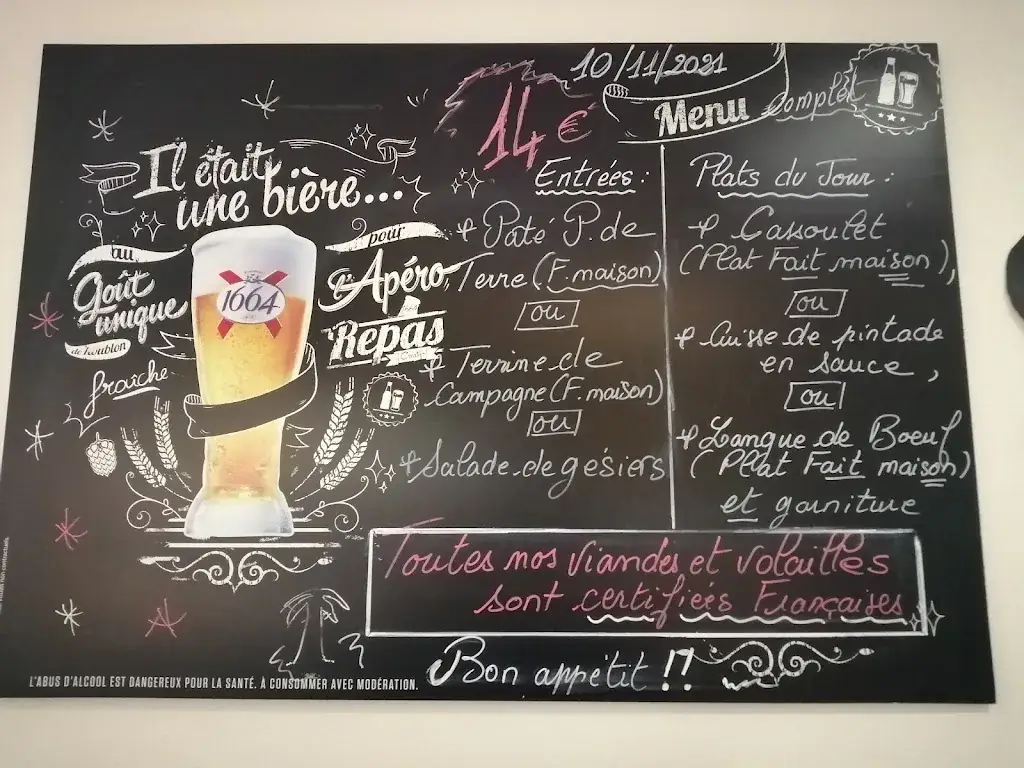 10/11/2021
14 €
Menu complet
Il était
une bière...
au
Goût
unique
de houblon
fraîche
1664
pour
Apéro
Repas
Entrées :
Paté P. de
Terre (F. maison)
ou
Terrine de
Campagne (F. maison)
ou
Salade de gésiers
Plats du Jour :
Cassoulet
(Plat Fait maison),
ou
Cuisse de pintade
en sauce,
ou
Langue de Boeuf
(Plat Fait maison)
et garniture
Toutes nos Viandes et Volailles
sont certifiées Françaises
Bon appétit !?
L'ABUS D'ALCOOL EST DANGEREUX POUR LA SANTÉ. À CONSOMMER AVEC MODÉRATION.